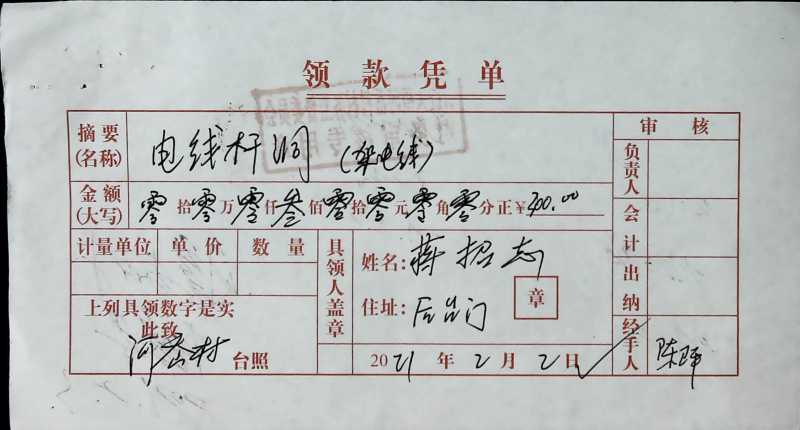 领款凭单
摘要(名称) 电线杆洞 (架电线) 审核
金额(大写) 零拾零万零仟叁佰零拾零元零角零分正¥300.00 负责人
计量单位 单价 数量 具领人盖章 姓名:蒋招志 会计
住址:后岩门 章 出纳
上列具领数字是实
此致
村 台照 2021年2月2日 经手人 陈